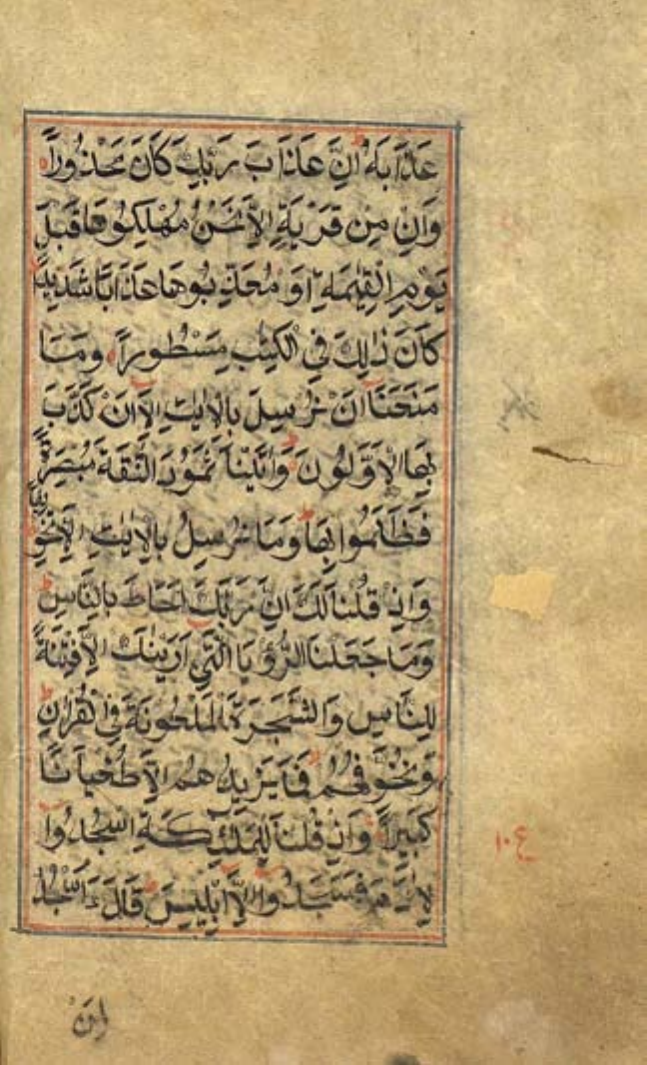 عَذَابَهُ اِنَّ عَذَابَ رَبِّكَ كَانَ مَحْذُوْرًا
وَاِنْ مِنْ قَرْيَةٍ اِلاَّ نَحْنُ مُهْلِكُوهَا قَبْلَ
يَوْمِ الْقِيٰمَةِ اَوْ مُعَذِّبُوهَا عَذَابًا شَدِيْدًا
كَانَ ذٰلِكَ فِي الْكِتٰبِ مَسْطُوْرًا وَمَا
مَنَعَنَا اَنْ نُرْسِلَ بِالْاٰيٰتِ اِلاَّ اَنْ كَذَّبَ
بِهَا الْاَوَّلُوْنَ وَاٰتَيْنَا ثَمُوْدَ النَّاقَةَ مُبْصِرَةً
فَظَلَمُوْا بِهَا وَمَا نُرْسِلُ بِالْاٰيٰتِ اِلاَّ تَخْوِيْفًا
وَاِذْ قُلْنَا لَكَ اِنَّ رَبَّكَ اَحَاطَ بِالنَّاسِ
وَمَا جَعَلْنَا الرُّؤْيَا الَّتِي اَرَيْنٰكَ اِلاَّ فِتْنَةً
لِلنَّاسِ وَالشَّجَرَةَ الْمَلْعُوْنَةَ فِي الْقُرْاٰنِ
وَنُخَوِّفُهُمْ فَمَا يَزِيْدُهُمْ اِلاَّ طُغْيَانًا
كَبِيْرًا وَاِذْ قُلْنَا لِلْمَلٰٓئِكَةِ اسْجُدُوْا
لِاٰدَمَ فَسَجَدُوْا اِلاَّ اِبْلِيْسَ قَالَ ءَاَسْجُدُ